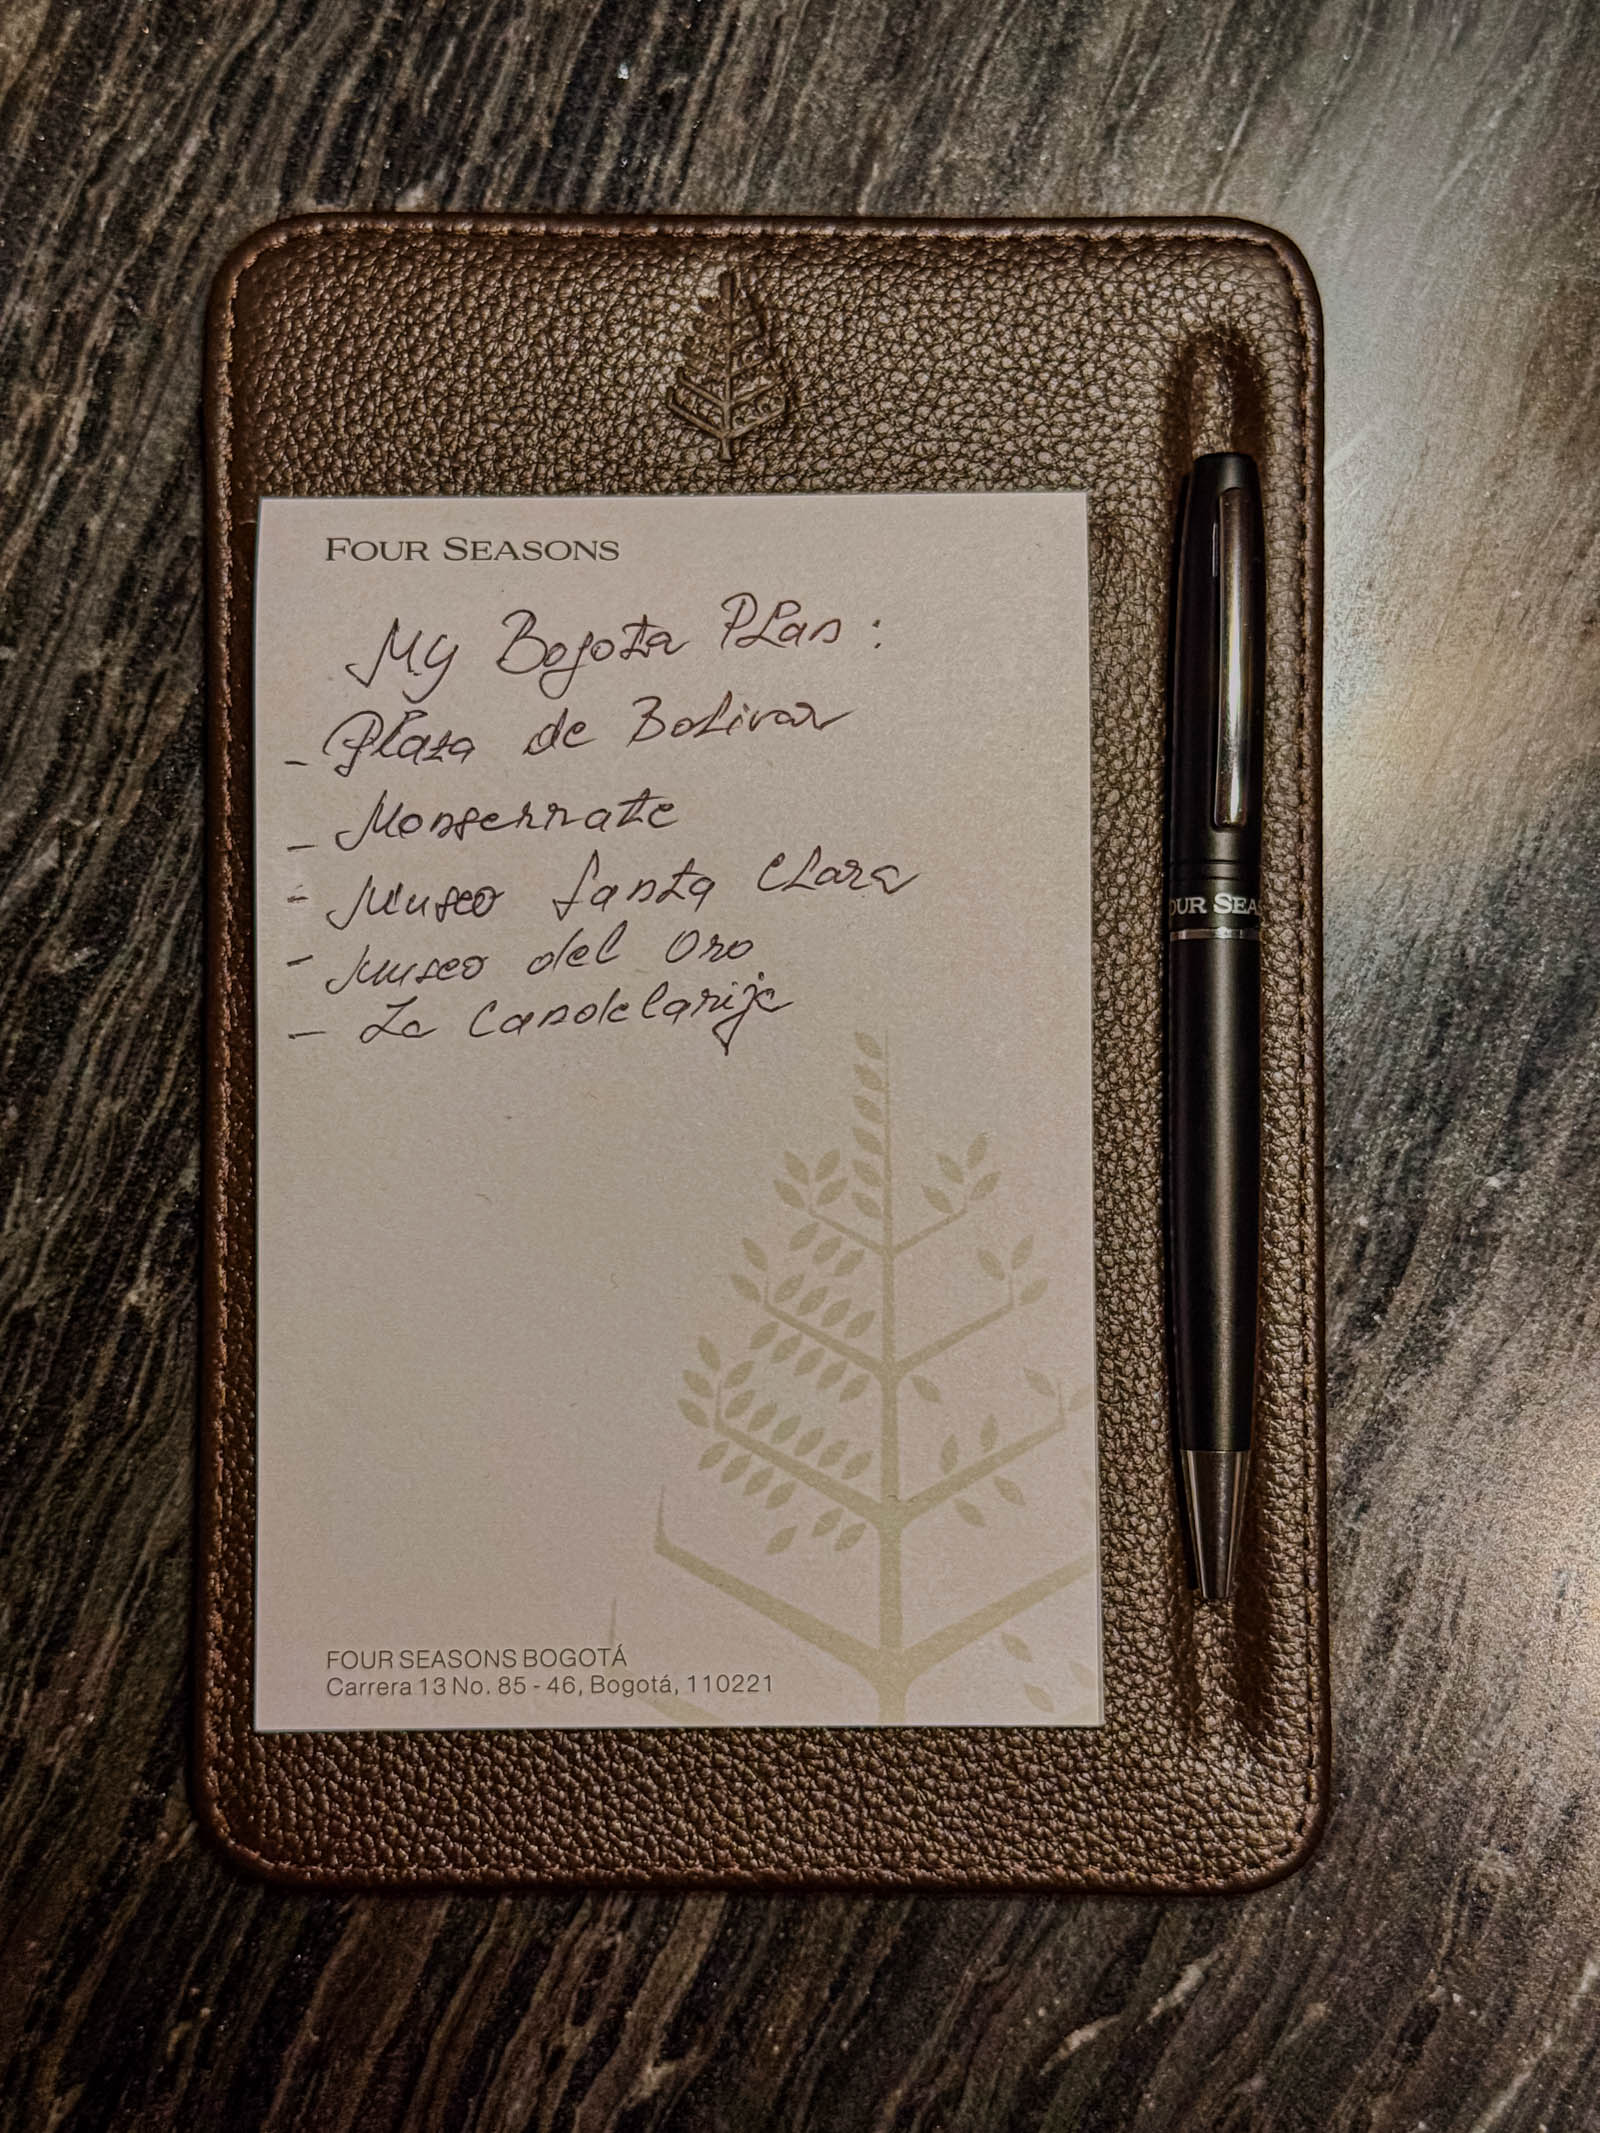 FOUR SEASONS
My Bogota Plan:
- Plaza de Bolivar
- Monserrate
- Museo Santa Clara
- Museo del Oro
- La Candelarija
OUR SEAS
FOUR SEASONS BOGOTÁ
Carrera 13 No. 85 - 46, Bogotá, 110221